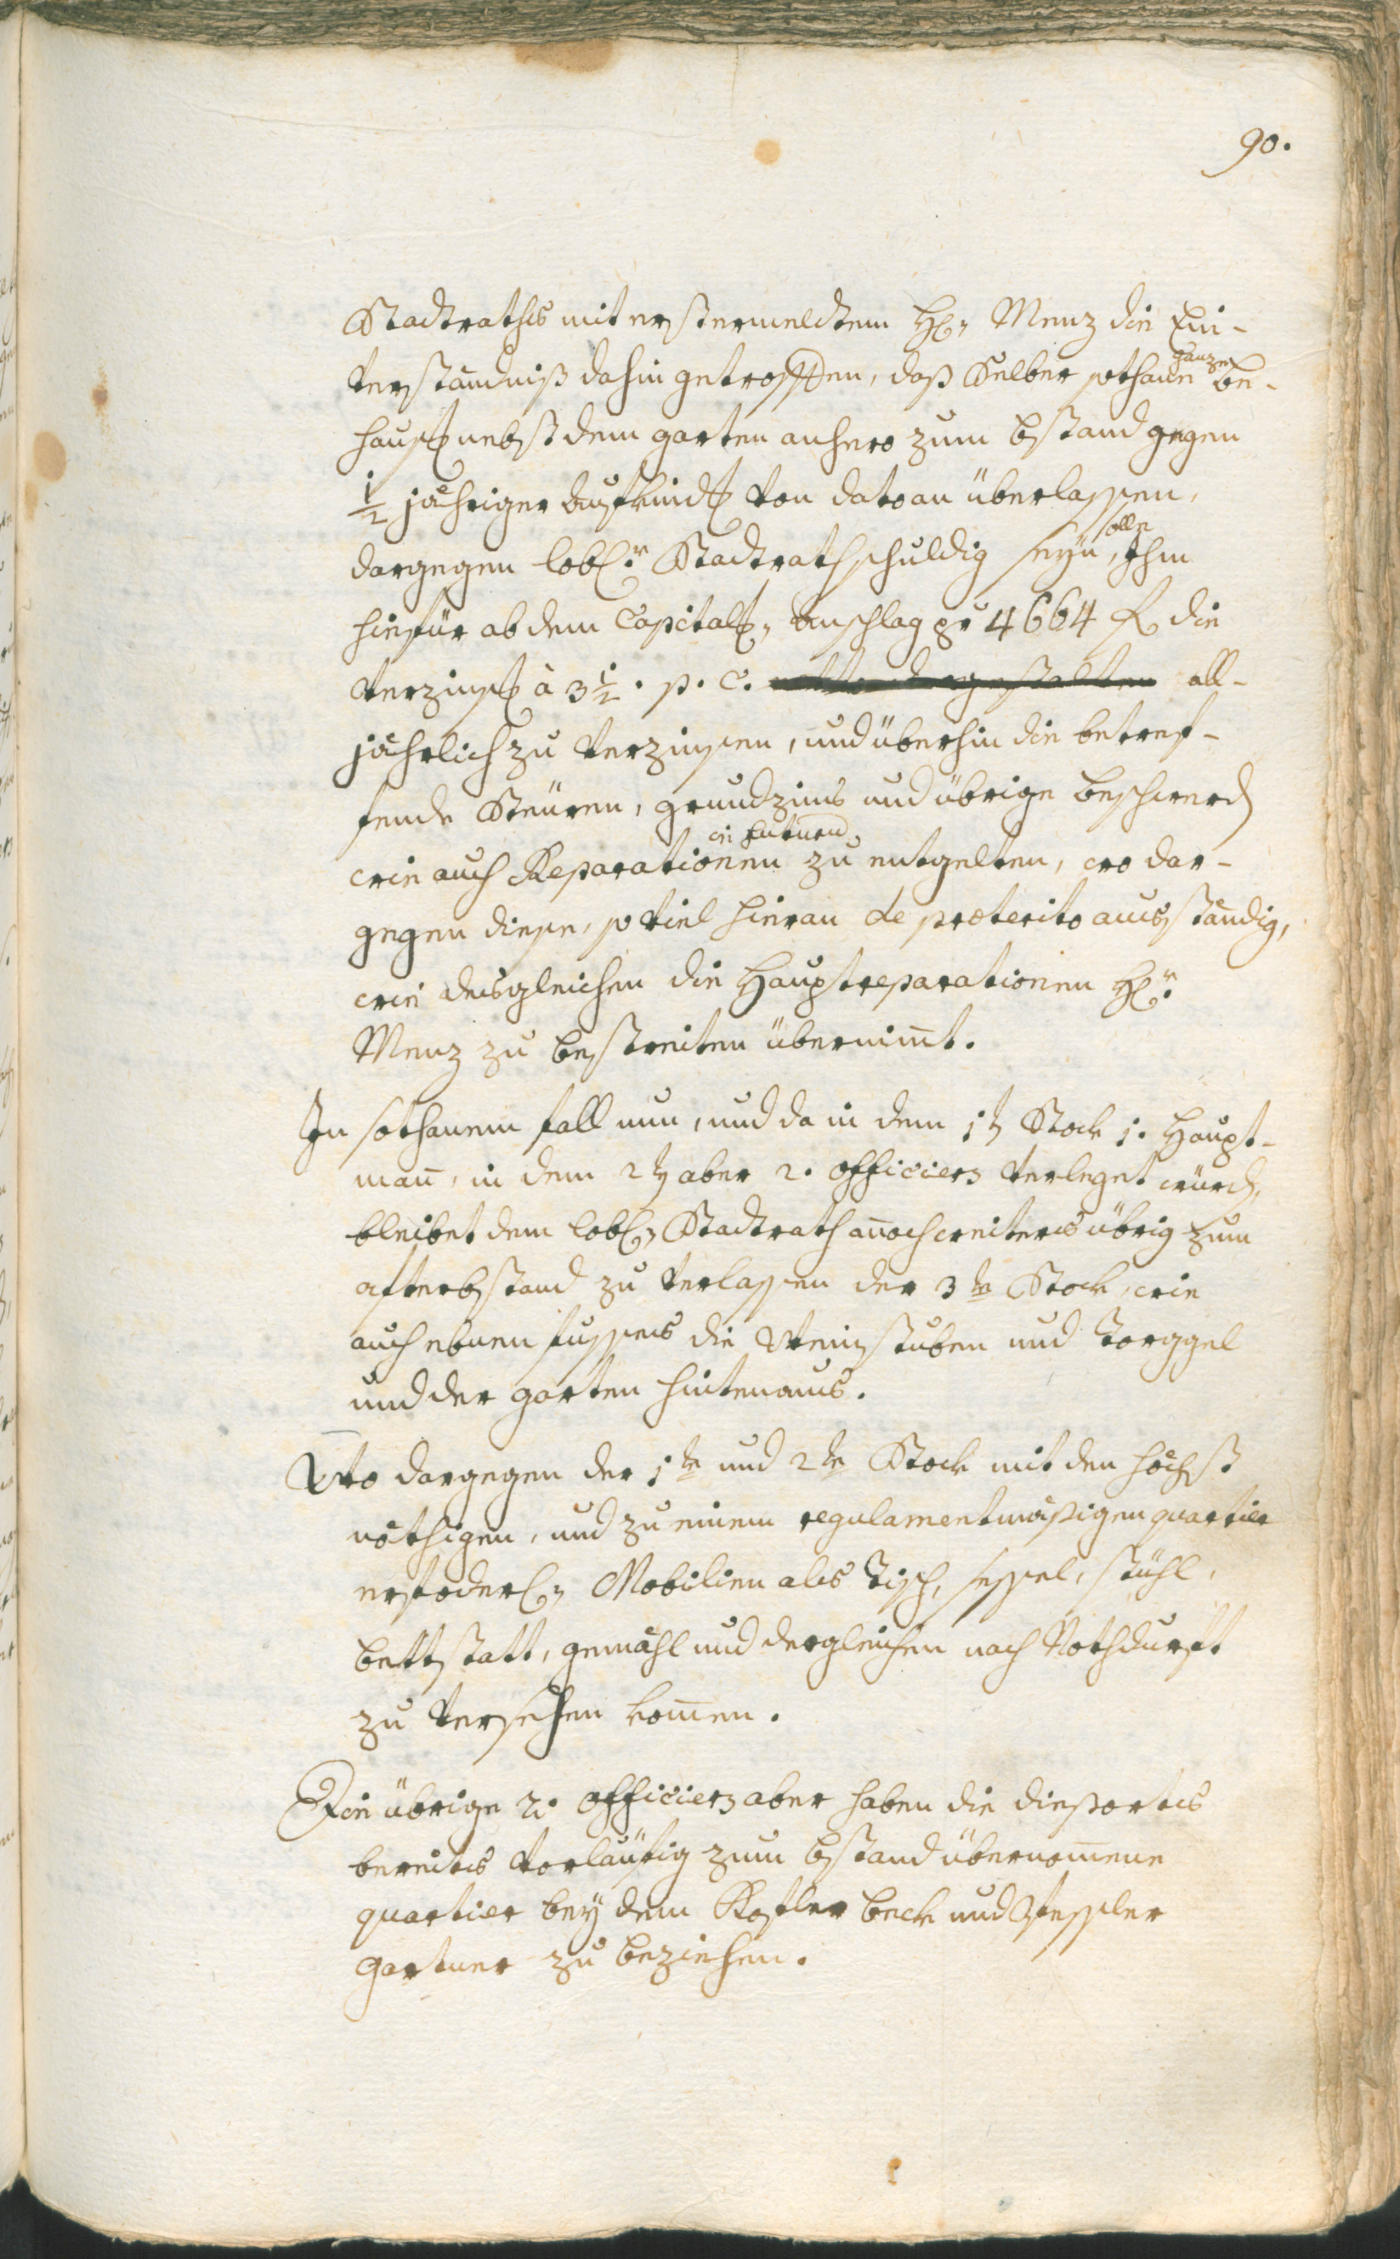 90.
Stadtraths mit ersterweldtem H: Menz die Ein-
verständniß dahin getroffen, daß Selber sothane ganze be-
haus: nebst dem garten anhero zum bstand gegen
1/2 jähriger Aufkünd: von dato an überlassen,
dargegen lobl:r Stadtrath schuldig seyn solle, Ihm
hinfür ab dem Capitals, Anschlag pr 4664 f. die
Verzins: à 3 1/2. p. C. all-
jährlich zu verzinsen, und überhin die betref-
fende Steüren, grundzins und übrige beschwerd,
wie auch Reparationen in futurum zu entgelten, wo dar-
gegen diese, so viel hieran de præterito ausständig,
wie desgleichen die Hauptreparationen H:r
Menz zu bestreiten übernim̄t.
In sothanem fall nun, und da in dem 1t Stock 1. Haupt-
man̄, in dem 2t aber 2. officiers verleget würd,
bleibet dem lobl: Stadtrath an̄och weiters übrig zum
afterbstand zu verlassen der 3te Stock, wie
auch ebnen fusses die Weinstuben und Torggel
und der garten hintenaus.
Wo dargegen der 1te und 2te Stock mit den höchst
nöthigen, und zu einem regulamentmäßigen quartier
erfoderl: Mobilien als Tisch, sessel, stühl,
bettstatt, gemähl und dergleichen nach Nothdurft
zu versehen kom̄en.
Die übrige 2. officiers aber haben die diesorts
bereits vorläufig zum bstand übernom̄ene
quartier bey dem Kostler beck und Stessler
gartner zu beziehen.